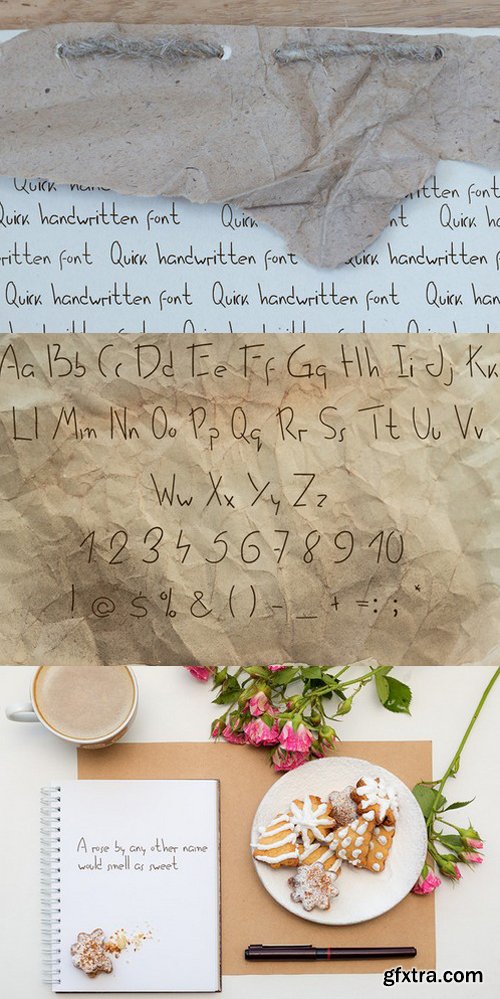 Quick handwritten font
Quick handwritten font Quick
handwritten font Quick handwritten font Quick handwritten
Quick handwritten font Quick handwritten font Quick han
Aa Bb Cc Dd Ee Ff Gg Hh Ii Jj Kk
Ll Mm Nn Oo Pp Qq Rr Ss Tt Uu Vv
Ww Xx Yy Zz
1 2 3 4 5 6 7 8 9 10
! @ $ % & ( ) - _ + = : ; *
A rose by any other name
would smell as sweet
gfxtra.com